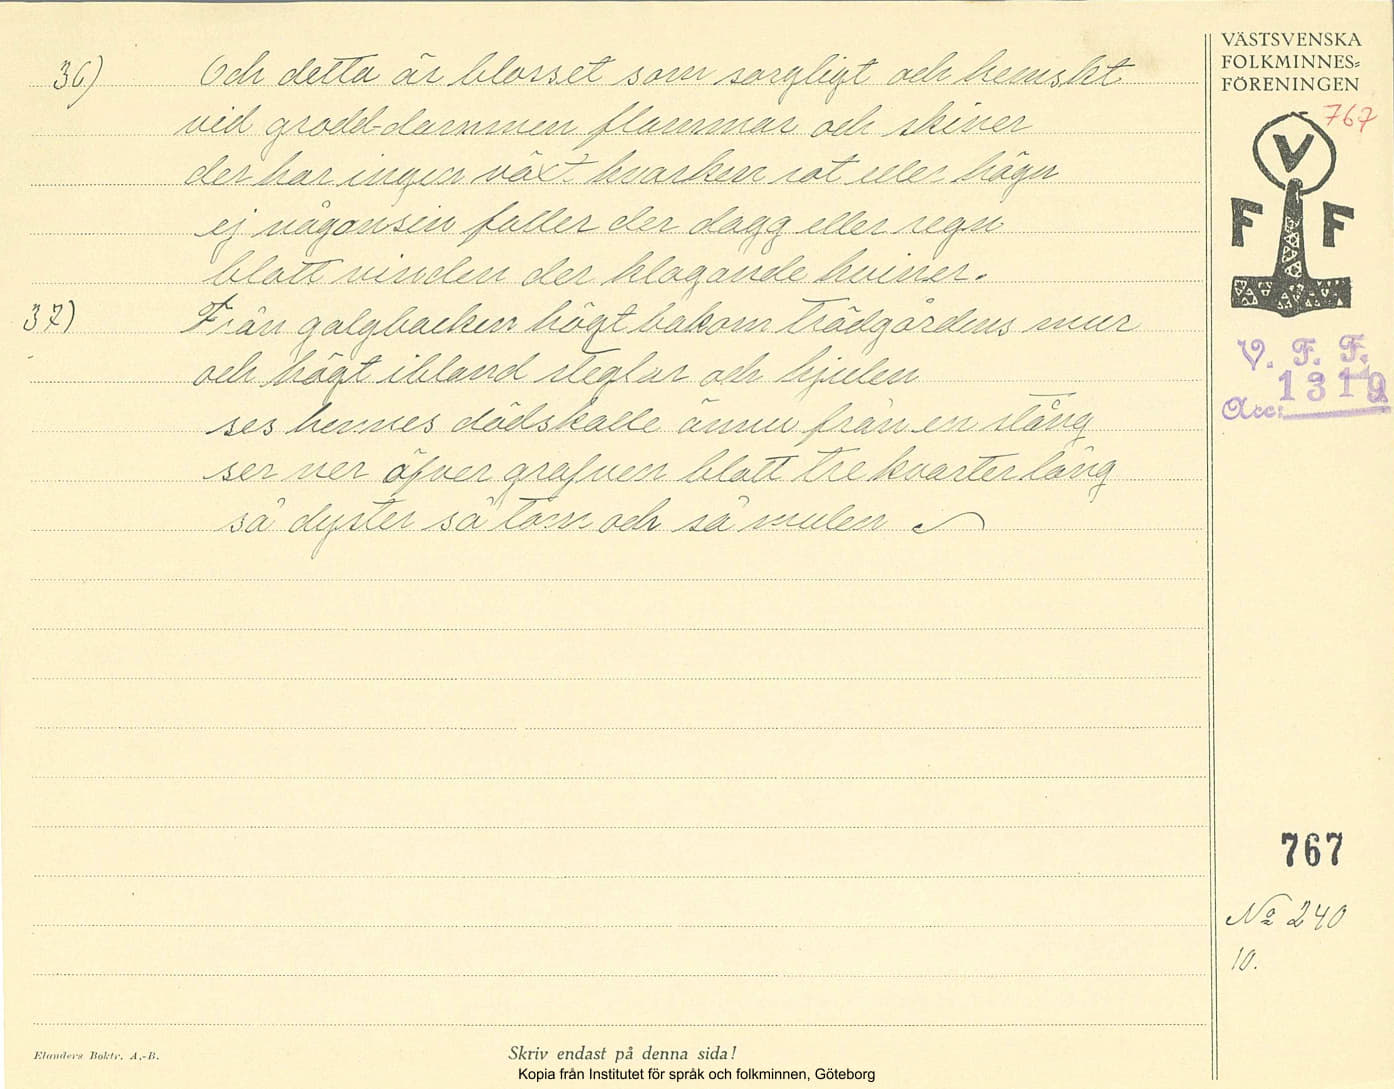 VÄSTSVENSKA
FOLKMINNES=
FÖRENINGEN
767
V
F F
V. F. F.
1319
Acc:
36) Och detta är blosset som sorgligt och hemskt
vid grodd-dammen flammar och skiner
der har ingen växt hvarken rot eller hägn
ej någonsin faller der dagg eller regn
blott vinden der klagande hviner.
37) Från galgbacken högt bakom trädgårdens mur
och högt ibland steglar och hjulen
ses hennes dödskalle ännu från en stång
ser ner öfver grafven blott tre kvarter lång
så dyster så tom och så mulen
767
No 240
10.
Elanders Boktr. A.-B.
Skriv endast på denna sida!
Kopia från Institutet för språk och folkminnen, Göteborg